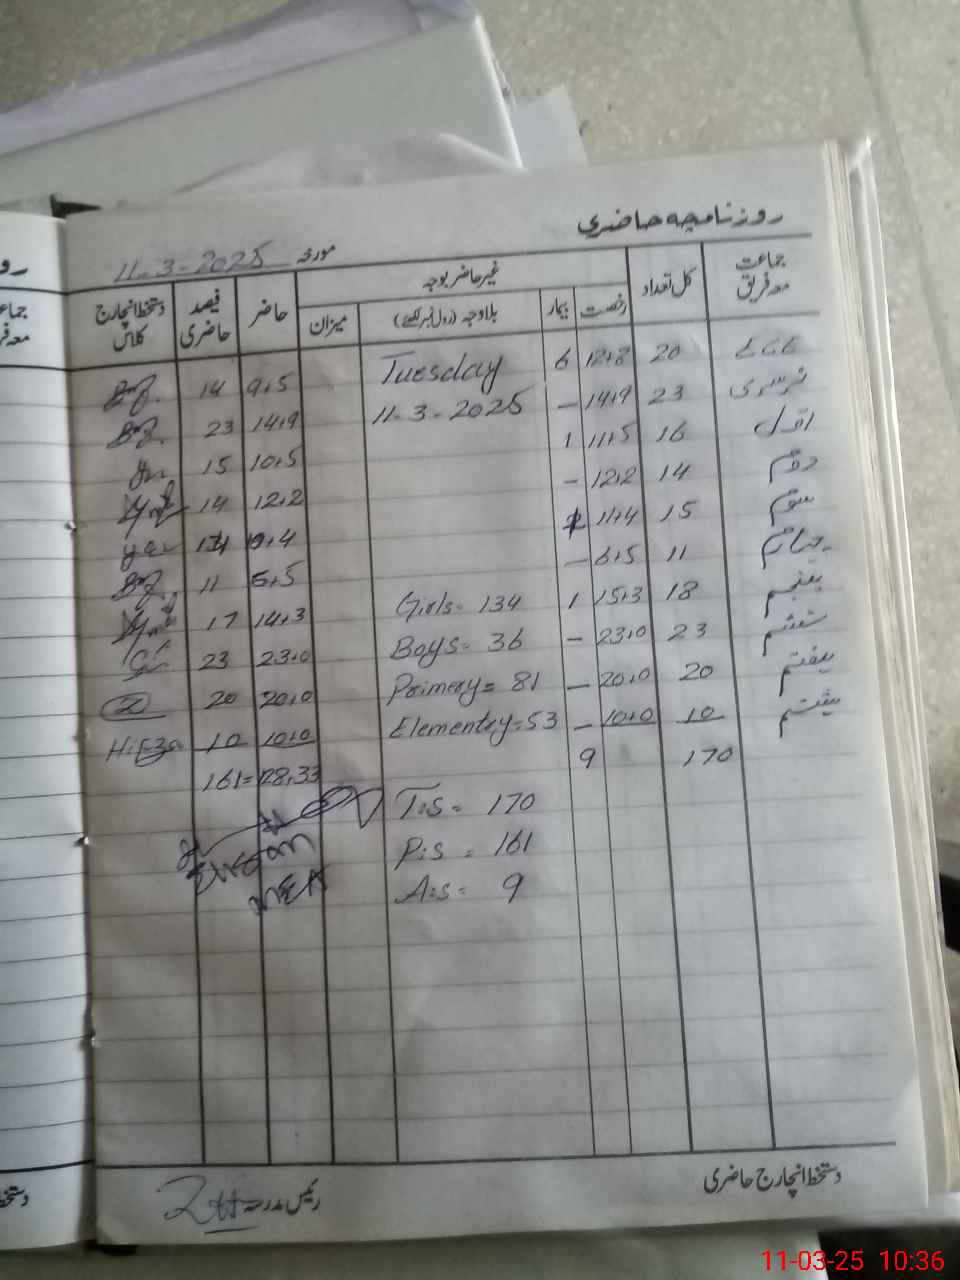 روزنامچہ حاضری
مورخہ 11-3-2025
جماعت معہ فریق کل تعداد غیر حاضر بوجہ حاضر فیصد حاضری دستخط انچارج کلاس
رخصت بیمار بلاوجہ (رول نمبر لکھئے) میزان
20 12+8 6 Tuesday 9+5 14
نرسری 23 14+9 – 11-3-2025 14+9 23
اول 16 11+5 1 10+5 15
دوم 14 12+2 – 12+2 14
سوم 15 11+4 1 +4 14
چہارم 11 6+5 – 6+5 11
پنجم 18 15+3 1 Girls= 134 14+3 17
ششم 23 23+0 – Boys= 36 23+0 23
ہفتم 20 20+0 – Primery= 81 20+0 20
ہشتم 10 10+0 – Elementry=53 10+0 10
170 9 128+33 161=
T:s= 170
P:s= 161
A:s= 9
MEA
دستخط انچارج حاضری
رئیس مدرسہ
11-03-25 10:36